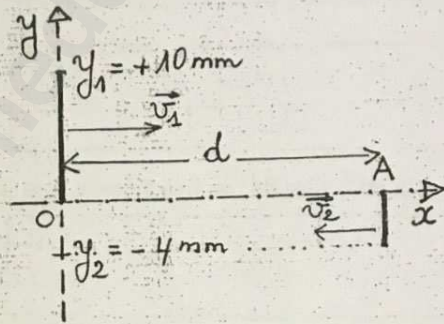 y
y₁ = +10 mm
v₁
d
A
O
v₂
x
y₂ = - 4 mm